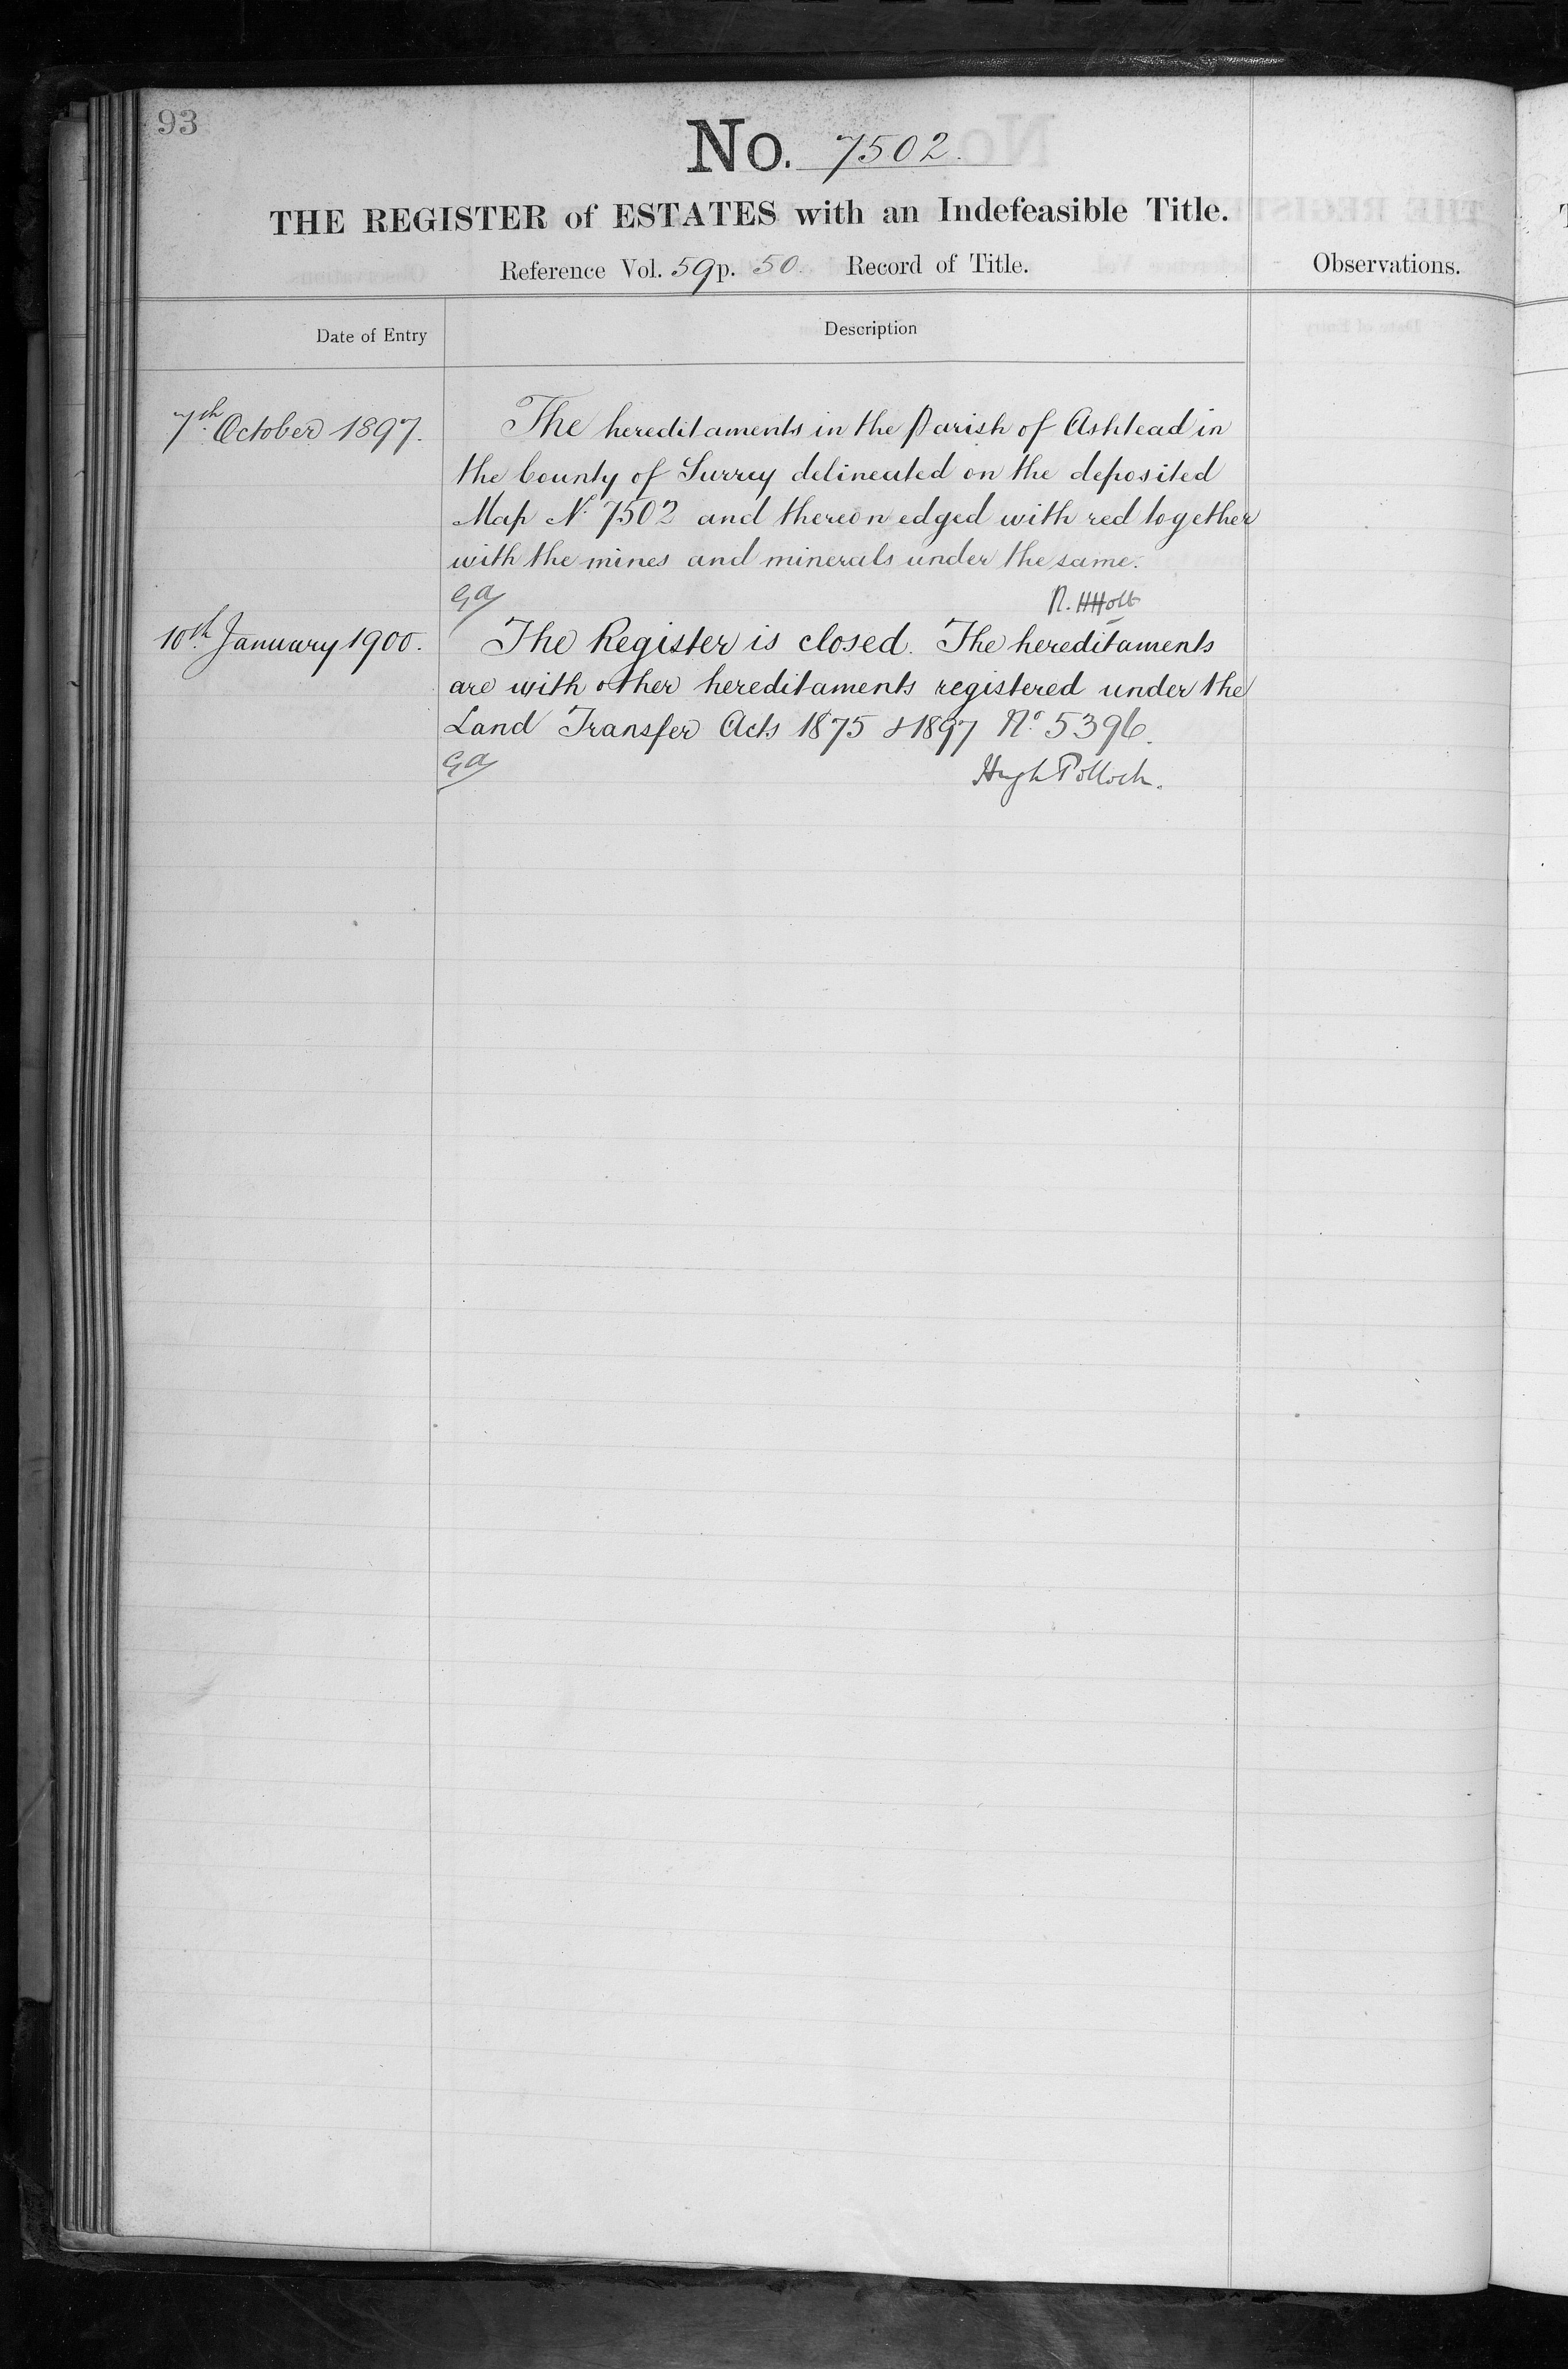 93
No. 7502.
THE REGISTER of ESTATES with an Indefeasible Title.
Reference Vol. 59 p. 50. Record of Title.
Observations.
Date of Entry
Description
7th October 1897.
The hereditaments in the Parish of Ashtead in
the County of Surrey delineated on the deposited
Map No. 7502 and thereon edged with red together
with the mines and minerals under the same.
R. H Holt
10th January 1900.
The Register is closed. The hereditaments
are with other hereditaments registered under the
Land Transfer Acts 1875 & 1897 No. 5396.
Hugh Pollock.